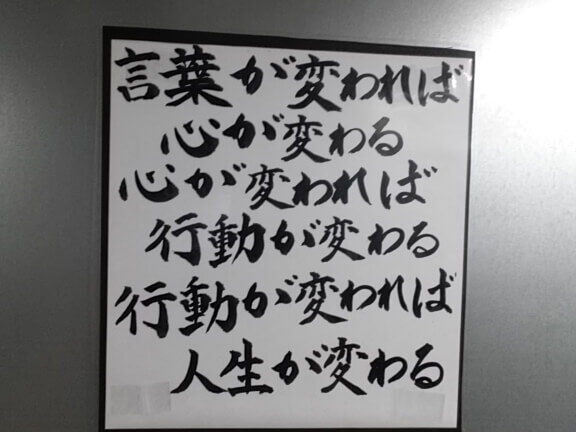 言葉が変われば
心が変わる
心が変われば
行動が変わる
行動が変われば
人生が変わる